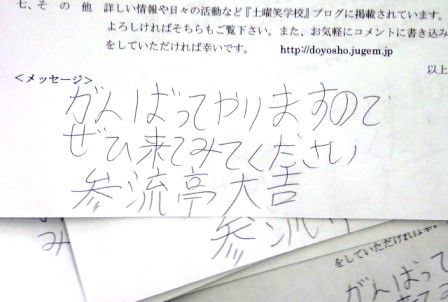 七、そ の 他 詳しい情報や日々の活動など『土曜笑学校』ブログに掲載されています。
よろしければそちらもご覧下さい。また、お気軽にコメントに書き込み
をしていただければ幸いです。 http://doyosho.jugem.jp
以上
<メッセージ>
がんばってやりますので
ぜひ来てみてください
参流亭大吉
み
参流
をしていただければ幸
がんばって